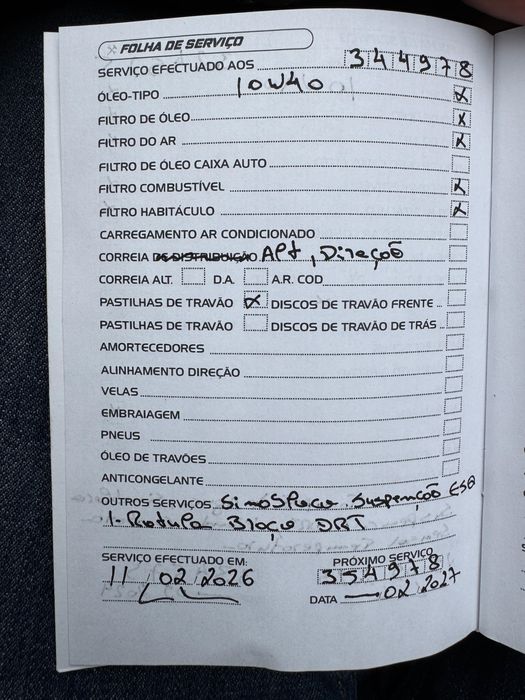 FOLHA DE SERVIÇO
SERVIÇO EFECTUADO AOS 344978
ÓLEO-TIPO 10W40 X
FILTRO DE ÓLEO X
FILTRO DO AR X
FILTRO DE ÓLEO CAIXA AUTO
FILTRO COMBUSTÍVEL X
FILTRO HABITÁCULO X
CARREGAMENTO AR CONDICIONADO
CORREIA DE DISTRIBUIÇÃO Alt, Direção
CORREIA ALT. D.A. A.R. COD
PASTILHAS DE TRAVÃO X DISCOS DE TRAVÃO FRENTE
PASTILHAS DE TRAVÃO DISCOS DE TRAVÃO DE TRÁS
AMORTECEDORES
ALINHAMENTO DIREÇÃO
VELAS
EMBRAIAGEM
PNEUS
ÓLEO DE TRAVÕES
ANTICONGELANTE
OUTROS SERVIÇOS Suspenção ESQ
1- Rotula Braço DRT
SERVIÇO EFECTUADO EM: PRÓXIMO SERVIÇO
11 02 2026 354978
DATA — 02 2027